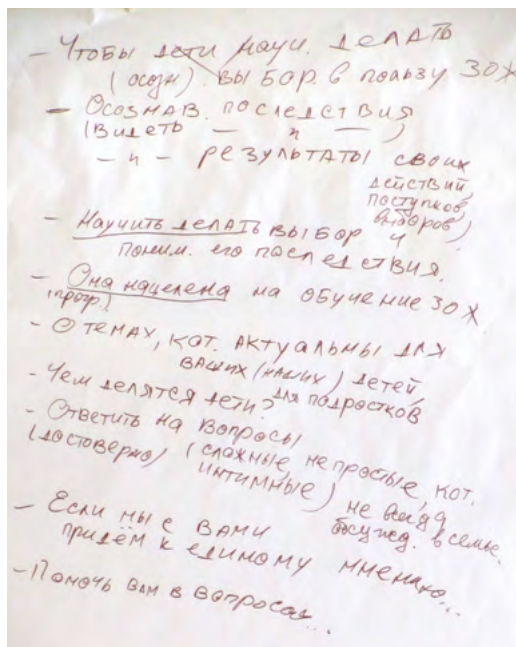 - Чтобы дети науч. делать
(осозн). выбор. в пользу ЗОЖ
- Осознав. последствия
(видеть — " —)
- " - результаты своих
действий,
поступков,
выборов)
- Научить делать выбор и
поним. его последствия.
- Она нацелена на обучение ЗОЖ.
(прогр.)
- О темах, кот. актуальны для
ваших (наших) детей
- Чем делятся дети? для подростков
- Ответить на вопросы
(достоверно) (сложные, непростые, кот.
интимные) не всегда
обсужд. в семье.
- Если мы с вами
придём к единому мнению...
- Помочь вам в вопросах...